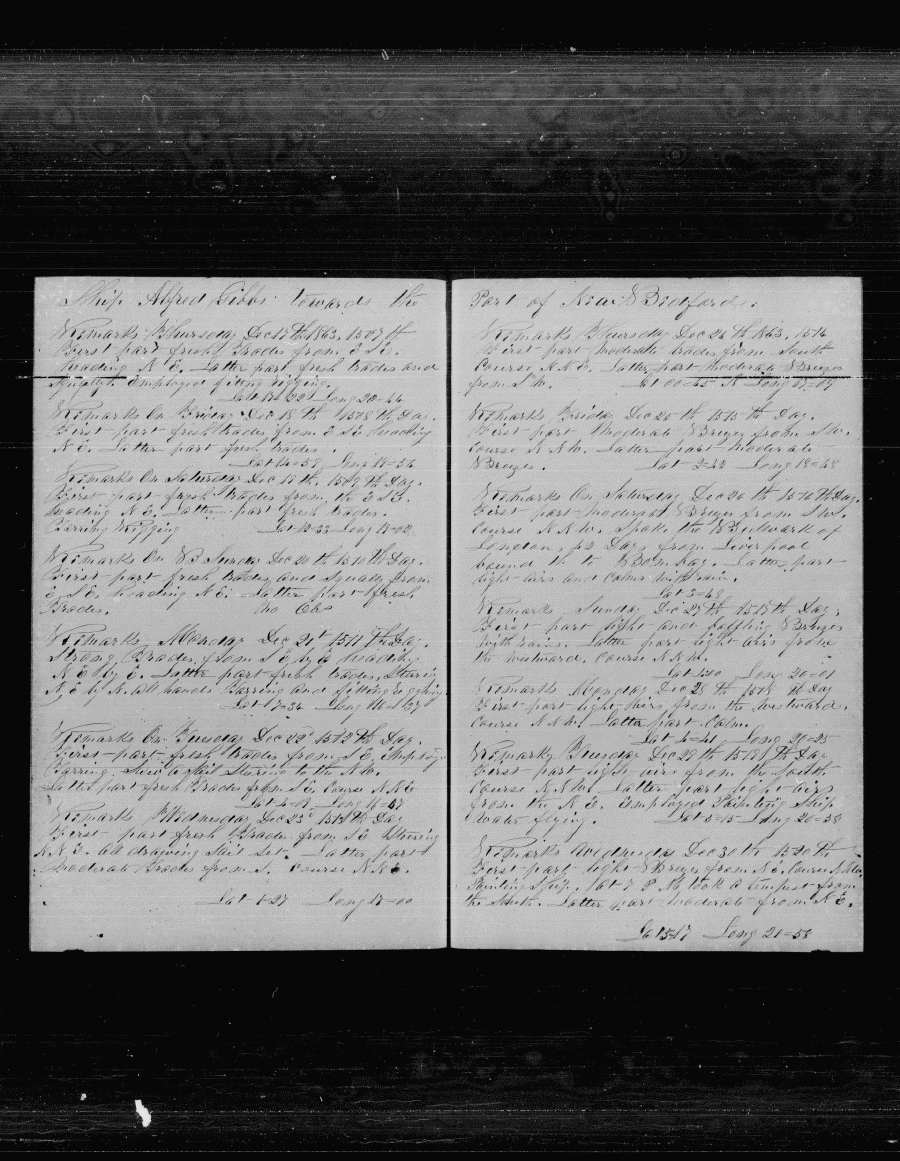 Ship Alfred Gibbs towards the
Remarks Thursday Dec 17th 1863, 1507th
First part fresh Trades from E S E.
heading N E. Latter part fresh trades and
Squally. Employed fitting rigging.
Long 20=44
Remarks On Friday Dec 18th 1508th Day.
First part fresh trades from E S E heading
N E. Latter part fresh trades.
Lat 14=58 Long 19=34
Remarks On Saturday Dec 19th 1509th Day.
First part fresh trades from the E S E.
heading N E. Latter part fresh trades.
Tarring Rigging Long 18=02
Remarks On Sunday Dec 20th 1510th Day.
First part fresh trades and Squally from
E S E. heading N E. Latter part fresh
Trades. No Obs
Remarks Monday Dec 21st 1511th Day
Strong Trades from S E by E heading
N E by E. Latter part fresh trades, Steering
N E by N. All hands Tarring and fitting rigging.
Lat 7=34 Long 16=37
Remarks On Tuesday Dec 22d 1512th Day.
First part fresh trades from S E. Employed
Tarring. Saw a Sail Steering to the N W.
Latter part fresh Trades from S E. Course N N E
Lat 4=09 Long 16=57
Remarks Wednesday Dec 23d 1513th Day
First part fresh Trades from S E Steering
N N E. All drawing Sail Set. Latter part
Moderate Trades from S. Course N N E.
Lat 1=27 Long 17=00
Port of New Bedford.
Remarks Thursday Dec 24th 1863, 1514
First part Moderate trades from South
Course N N E. Latter part Moderate Breezes
from S W. Lat 00=45 N Long 17=09
Remarks Friday Dec 25th 1515th Day.
First part Moderate Breezes from S W.
Course N N W. Latter part Moderate
Breezes. Lat 2=42 Long 18=48
Remarks On Saturday Dec 26th 1516th Day.
First part Moderate Breezes from S W.
Course N N W. Spoke the Bulwark of
London, 32 Days from Liverpool
bound to Bombay. Latter part
light airs and Calms with rain.
Lat 3=48
Remarks Sunday Dec 27th 1517th Day.
First part light and baffling Breezes
with rains. Latter part light airs from
the westward. Course N N W.
Long 20=01
Remarks Monday Dec 28th 1518th Day
First part light airs from the westward.
Course N N W. Latter part Calm.
Lat 4=41 Long 20=25
Remarks Tuesday Dec 29th 1519th Day
First part light airs from the South
Course N N W. Latter part light airs
from the N E. Employed Painting Ship
Boats flying. Lat 5=15 Long 20=38
Remarks Wednesday Dec 30th 1520th
First part light Breezes from N E. Course N N W.
Painting Ship. At 7 P M took a tempest from
the South. Latter part Moderate from N E.
Lat 5=17 Long 21=58